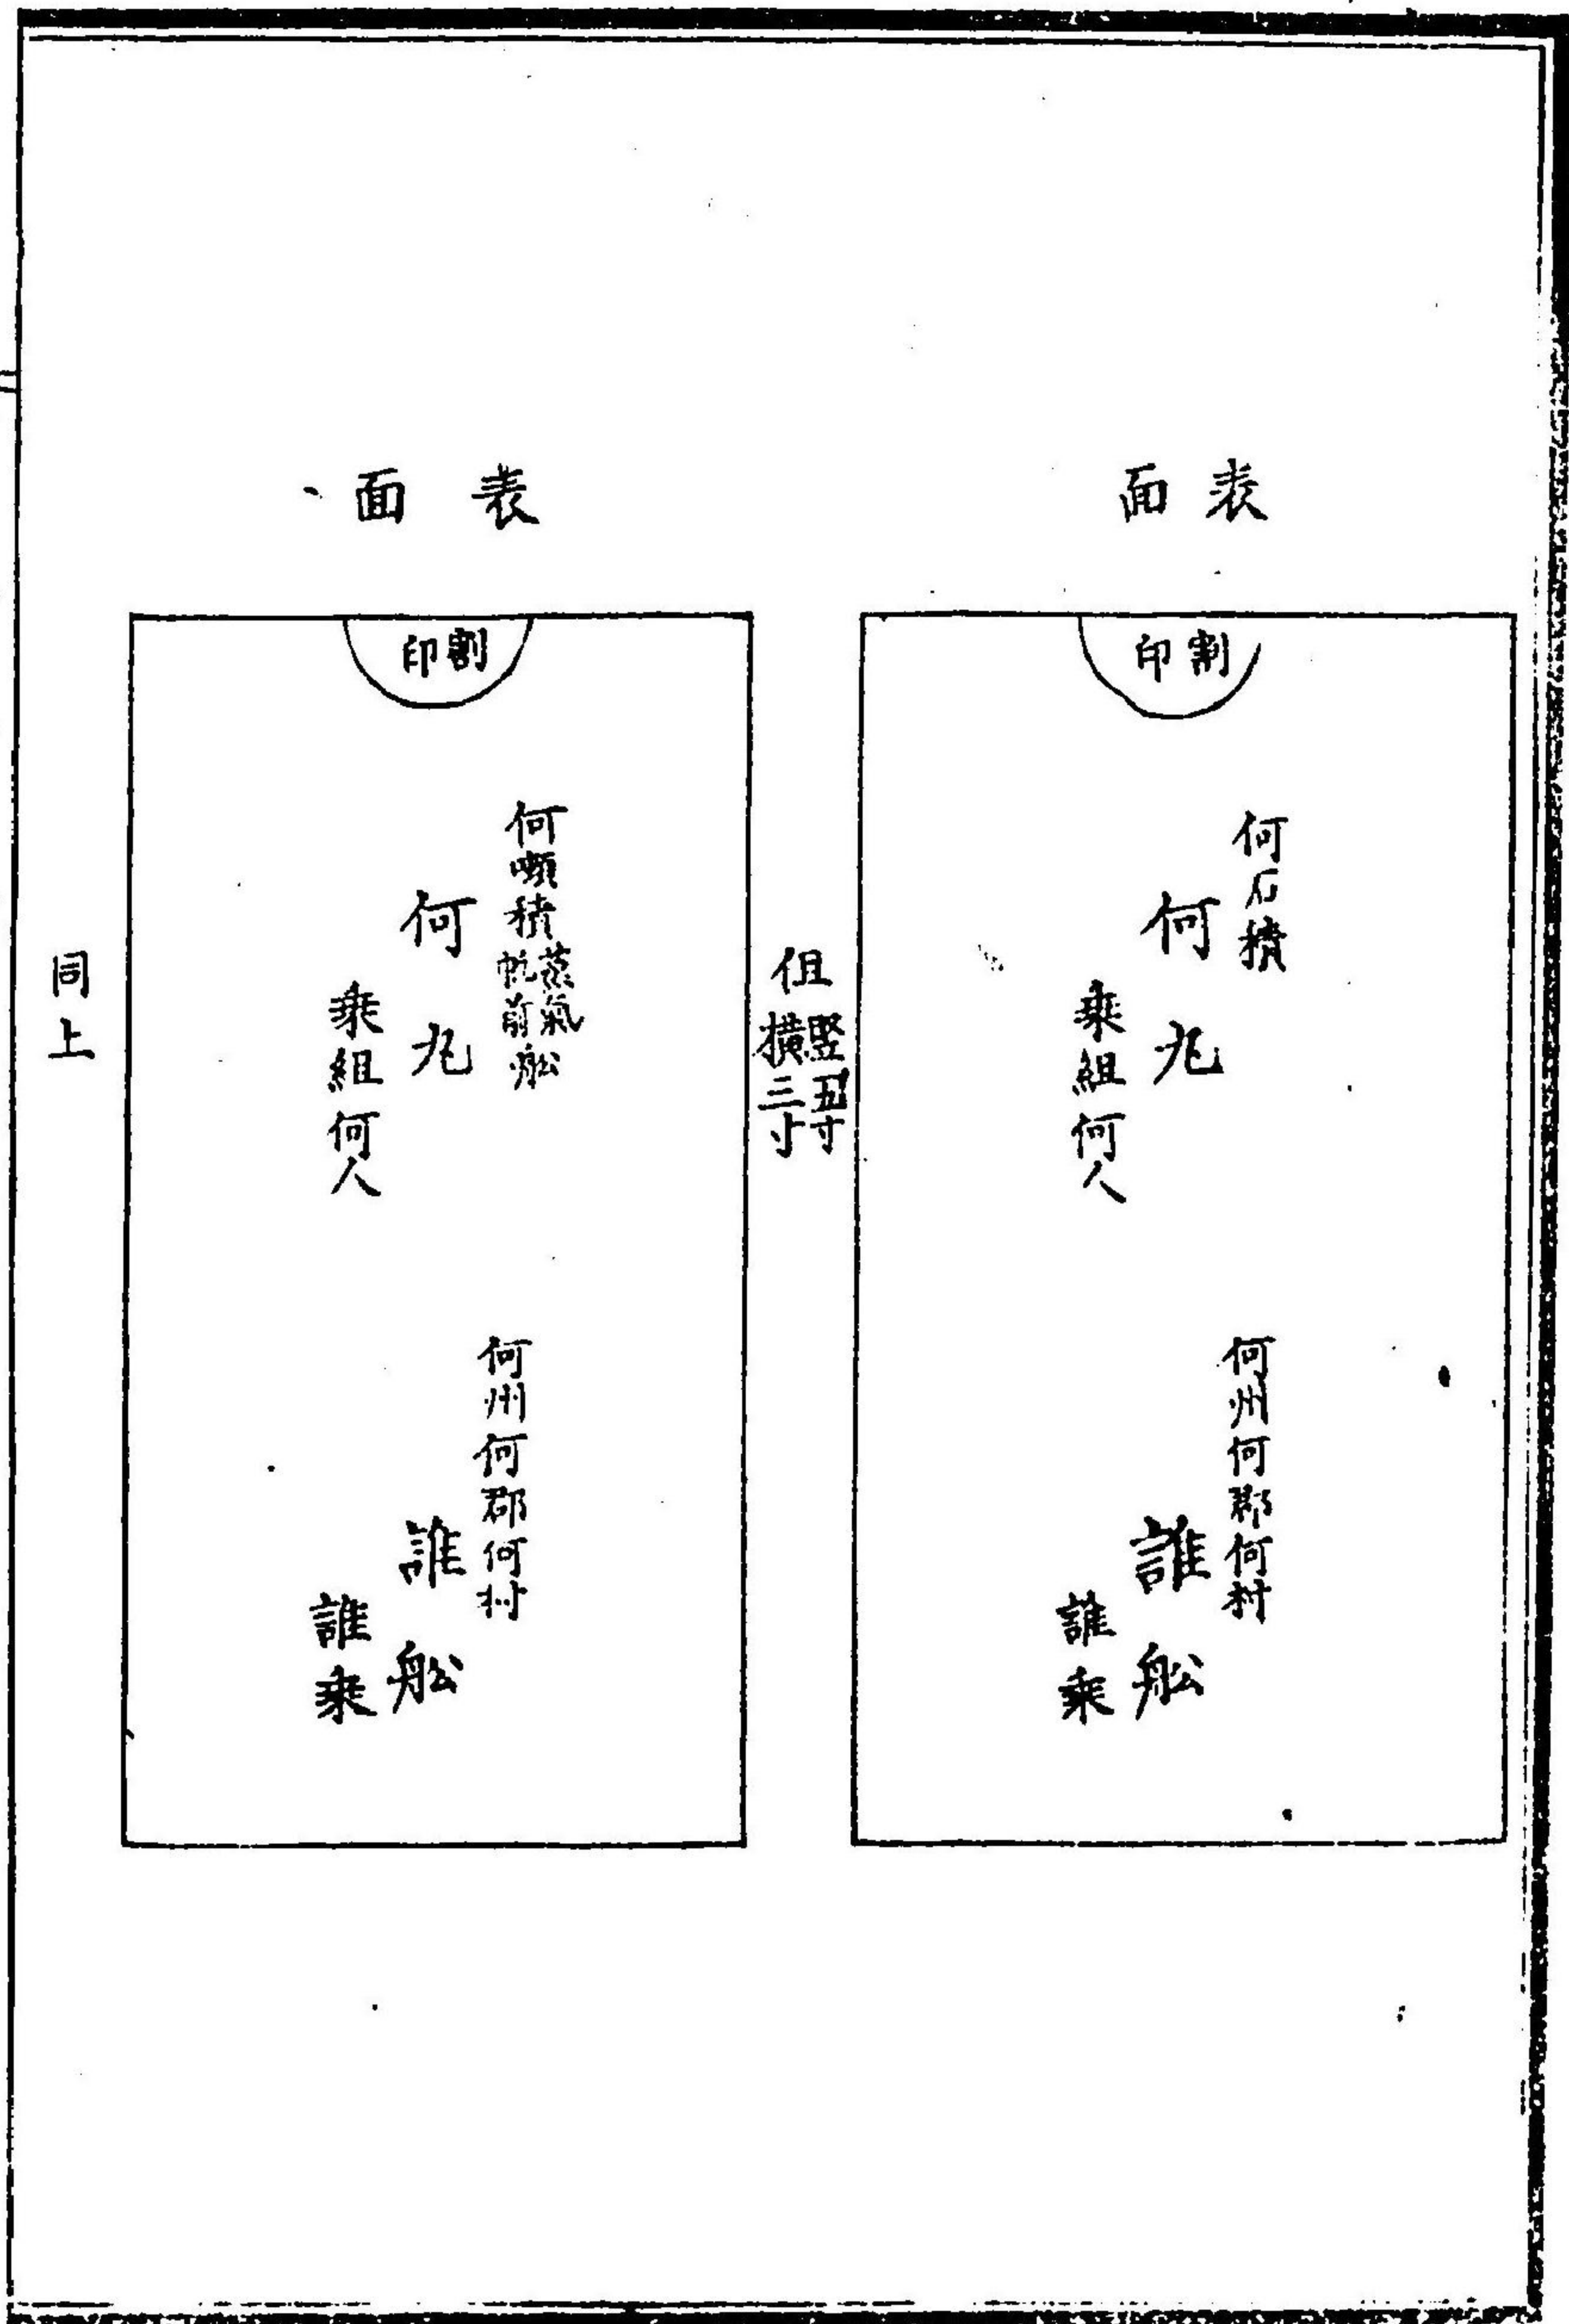 表面
割印
何石積
何丸
乗組何人
何州何郡何村
誰船
誰乗
但竪五寸
横三寸
表面
割印
何噸積蒸氣
帆前船
何丸
乗組何人
何州何郡何村
誰船
誰乗
同上